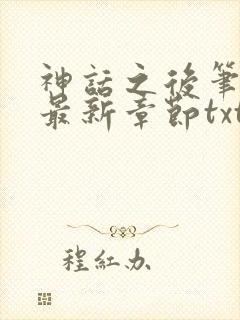 神話之後筆
最新章節txt
程紅办